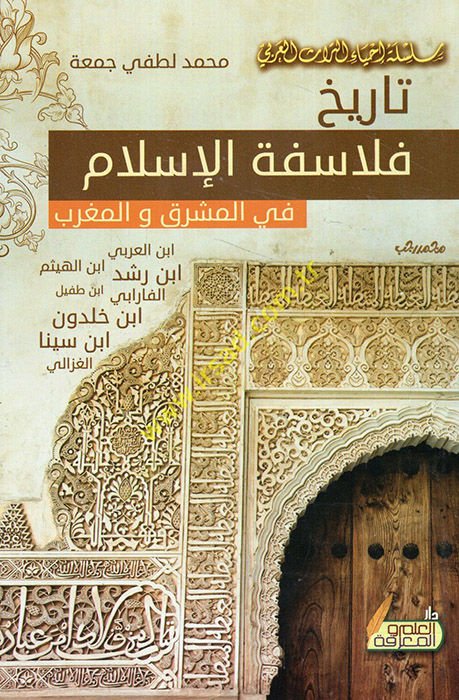 سلسلة إحياء التراث العربي
محمد لطفي جمعة
تاريخ
فلاسفة الإسلام
في المشرق و المغرب
ابن العربي
ابن رشد ابن الهيثم
الفارابي ابن طفيل
ابن خلدون
ابن سينا
الغزالي
محمد رجب
دار
العلم و
المعرفة